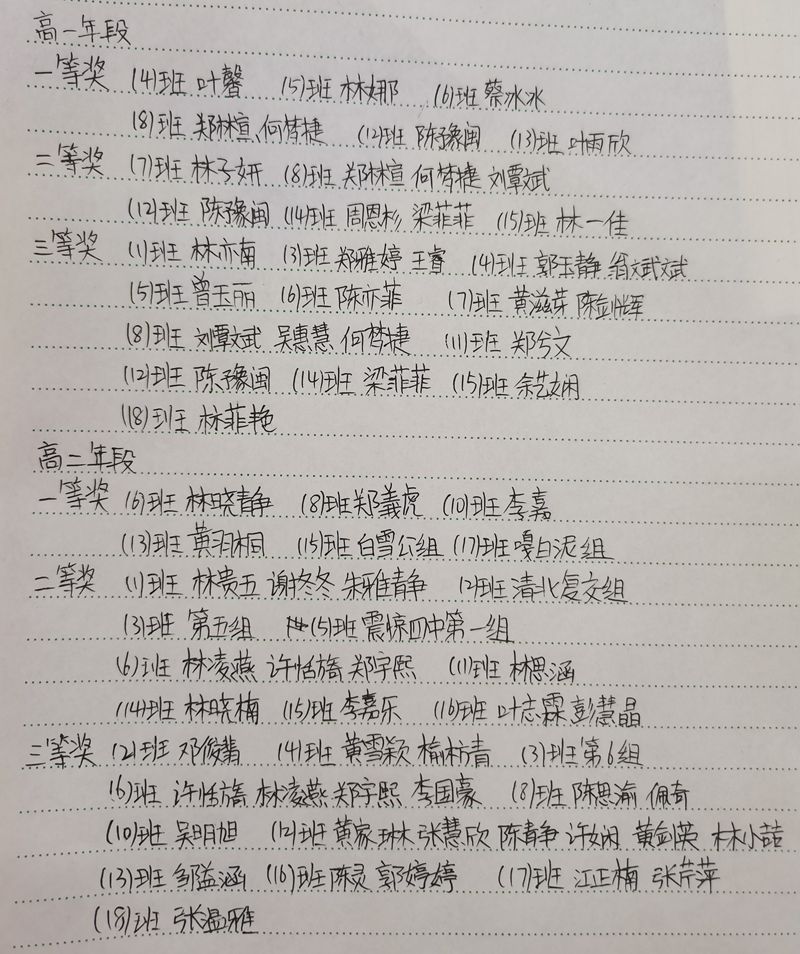 高一年段
一等奖 (4)班 叶馨 (5)班 林娜 (6)班 蔡冰冰
(8)班 郑林楦 何梦捷 (12)班 陈豫闽 (13)班 叶雨欣
二等奖 (7)班 林子妍 (8)班 郑林楦 何梦捷 刘覃斌
(12)班 陈豫闽 (14)班 周恩杉 梁菲菲 (15)班 林一佳
三等奖 (1)班 林亦南 (3)班 郑雅婷 王睿 (4)班 郭玉静 翁斌斌
(5)班 曾玉丽 (6)班 陈亦菲 (7)班 黄滋芽 陈剑辉
(8)班 刘覃斌 吴惠慧 何梦捷 (11)班 郑兮文
(12)班 陈豫闽 (14)班 梁菲菲 (15)班 余艺娴
(18)班 林菲艳
高二年段
一等奖 (6)班 林晓静 (8)班 郑羲虎 (10)班 李嘉
(13)班 黄羽桐 (15)班 白雪公组 (17)班 嘎白泥组
二等奖 (1)班 林贵五 谢冬冬 朱雅静 (2)班 清北复交组
(3)班 第五组 (5)班 震惊四中第一组
(6)班 林凌燕 许恬旖 郑宇熙 (11)班 林思涵
(14)班 林晓楠 (15)班 李嘉乐 (16)班 叶志霖 彭慧晶
三等奖 (2)班 邓俊翡 (4)班 黄雪颖 青 (3)班 第6组
(6)班 许恬旖 林凌燕 郑宇熙 李国豪 (8)班 陈思渝 佩奇
(10)班 吴明旭 (12)班 黄家琳 张慧欣 陈静 许娴 黄剑英 林小喆
(13)班 邹益涵 (16)班 陈灵 郭婷婷 (17)班 江正楠 张芹萍
(18)班 张温雅